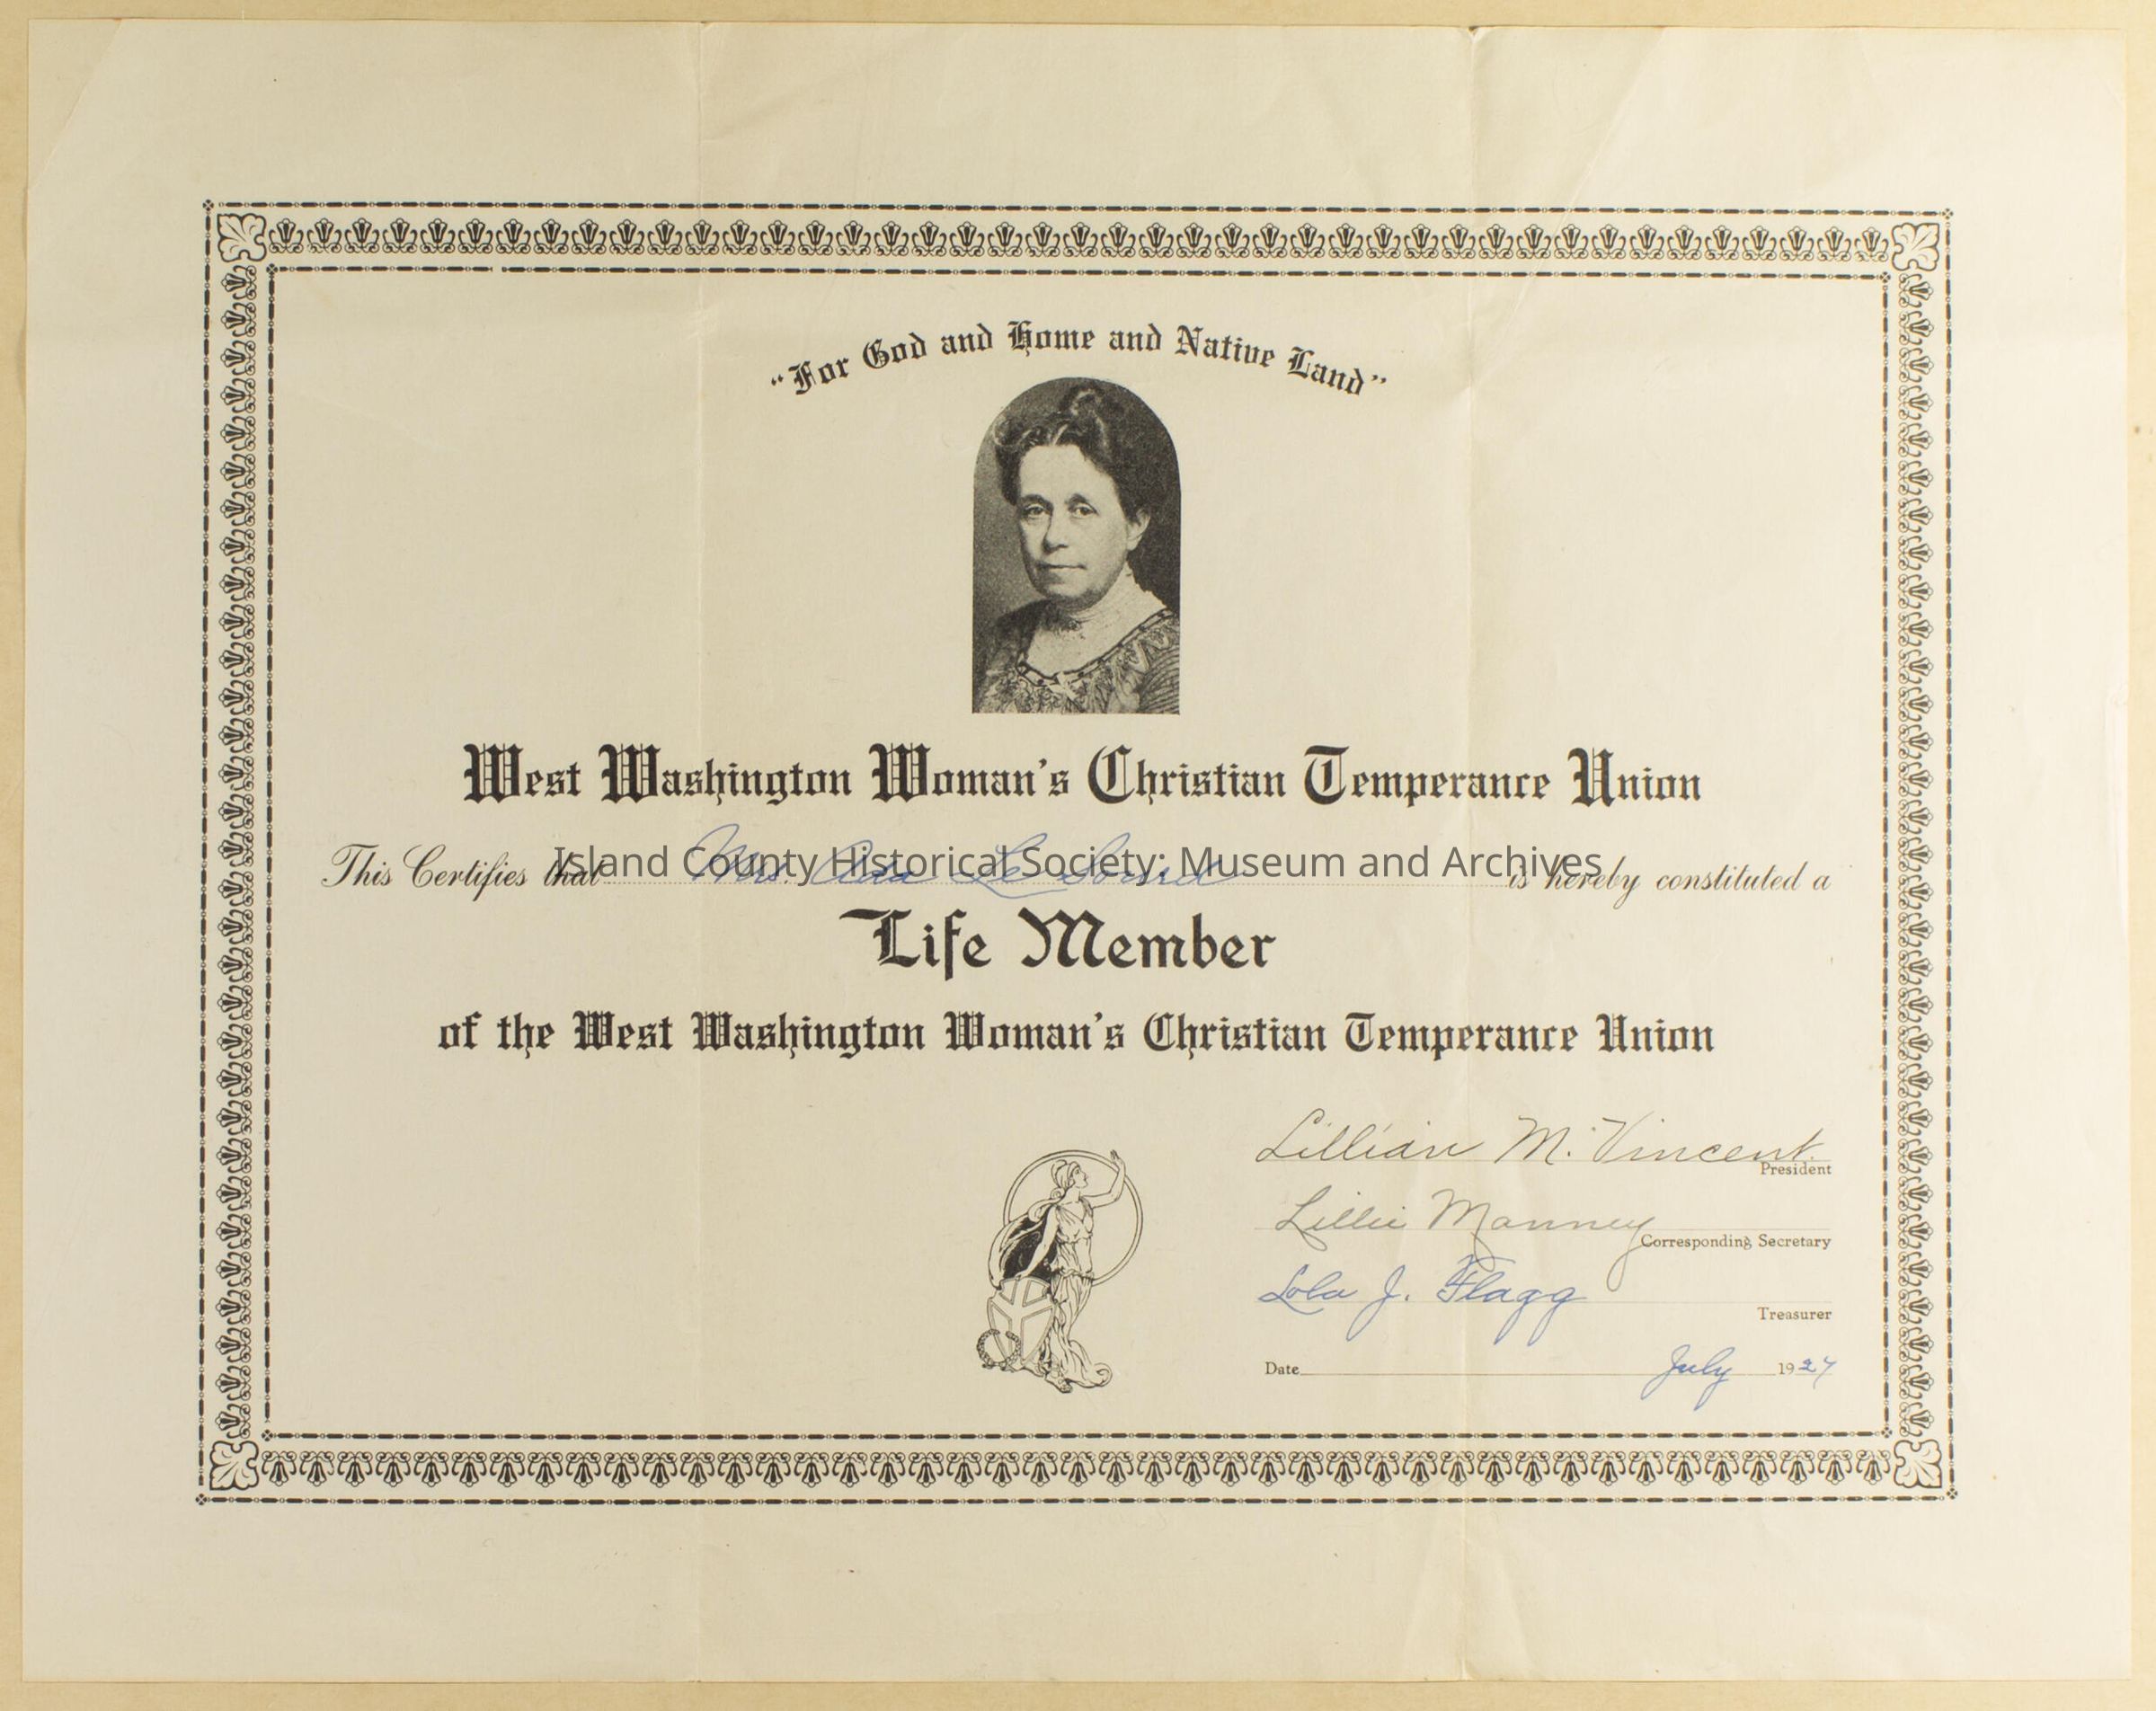 “For God and Home and Native Land”
West Washington Woman's Christian Temperance Union
This Certifies that Mrs. Ada Le Sourd is hereby constituted a
Island County Historical Society: Museum and Archives
Life Member
of the West Washington Woman's Christian Temperance Union
Lillian M. Vincent.
President
Lillie Manney
Corresponding Secretary
Lola J. Flagg
Treasurer
Date July 1927